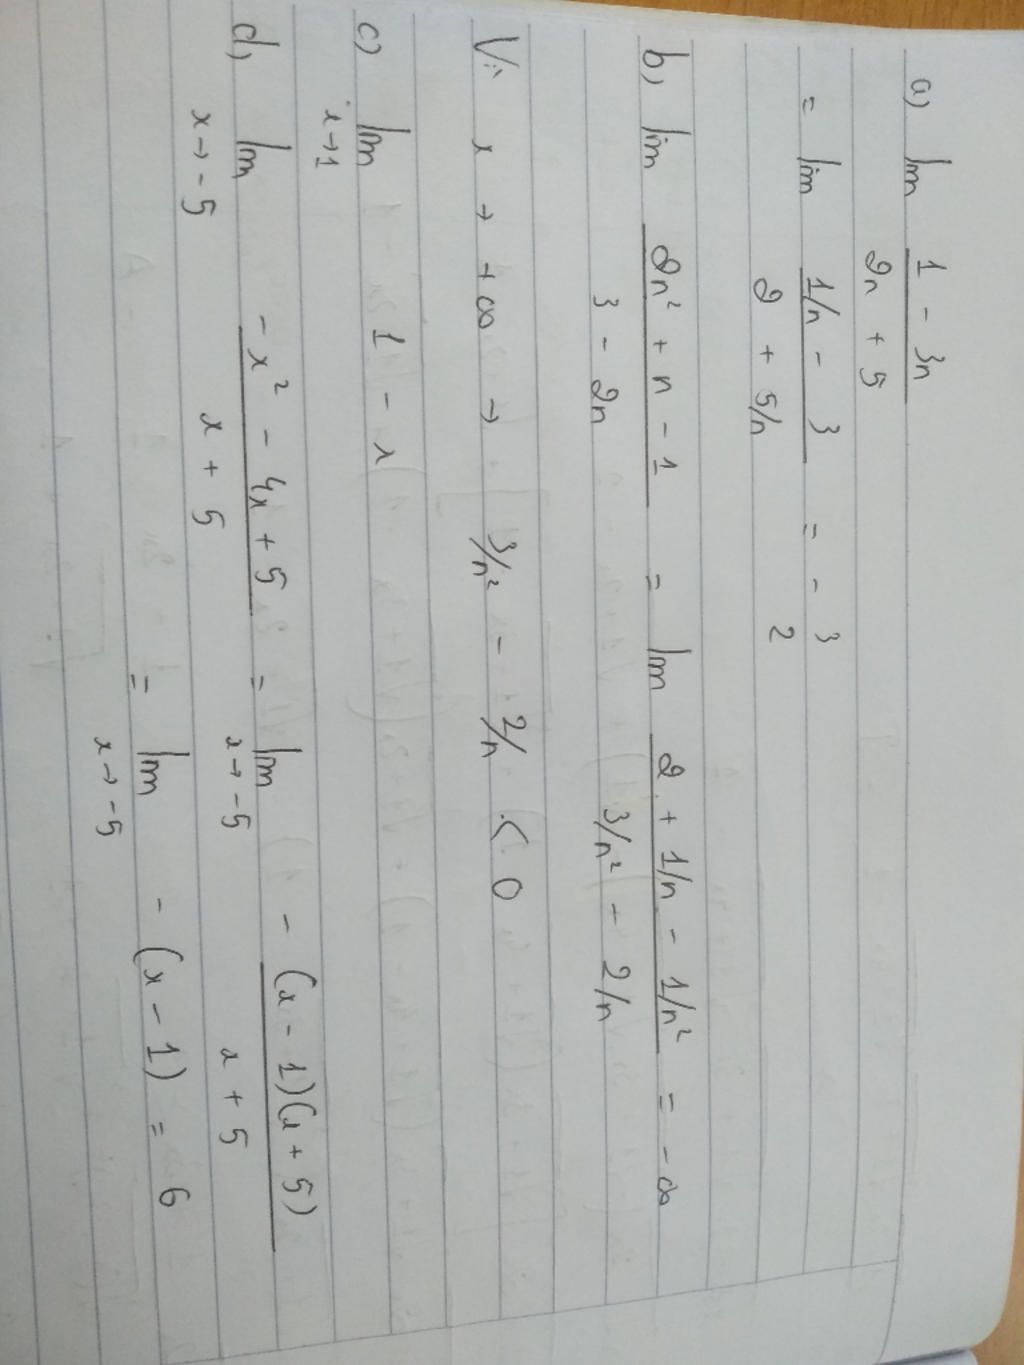 a) lim (1 - 3n)/(2n + 5)
= lim (1/n - 3)/(2 + 5/n) = - 3/2
b) lim (2n² + n - 1)/(3 - 2n) = lim (2 + 1/n - 1/n²)/(3/n² - 2/n) = - ∞
Vì x → +∞ → 3/n² - 2/n < 0
c) lim x→1 1 - x
d) lim x→-5 (-x² - 4x + 5)/(x + 5) = lim x→-5 (-(x - 1)(x + 5))/(x + 5)
= lim x→-5 -(x - 1) = 6